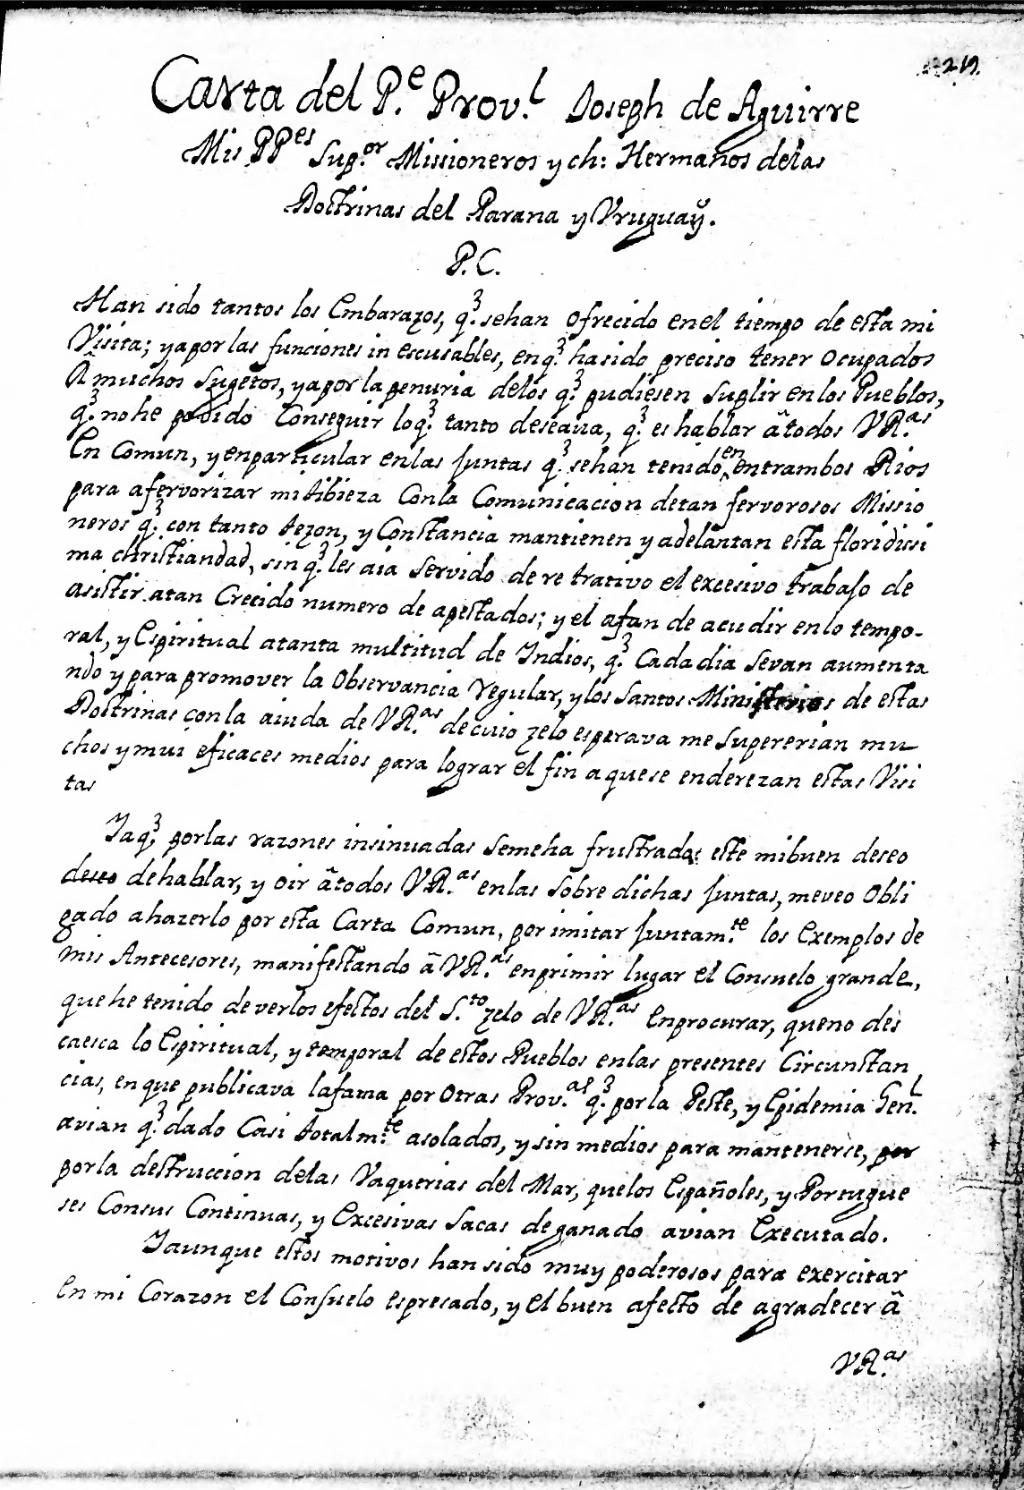 219.
Carta del P.e Prov.l Joseph de Aguirre
Mis PP.es Sup.or Missioneros y ch: Hermanos delas
Doctrinas del Parana y Vruguaÿ.
P. C.
Han sido tantos los Embarazos, q.e sehan ofrecido enel tiempo de esta mi
Visita; yaporlas funciones in escusables, enq.e hasido preciso tener ocupados
â muchos Sugetos, yaporlapenuria delos q.e pudiesen Suplir enlos Pueblos,
q.e nohe podido Conseguir loq.e tanto deseaua, q.e es hablar âtodos VR.as
En Comun, y enparticular enlas Juntas q.e sehan tenido en entrambos Rios
para afervorizar mitibieza Conla Comunicacion detan fervorosos Missio
neros q.e con tanto tezon, y Constancia mantienen y adelantan esta floridissi
ma christiandad, sin q.e les aia Servido de re trativo el excesivo trabajo de
asistir atan Crecido numero de apestados; y el afan de acudir enlo tempo-
ral, y Espiritual atanta multitud de Indios, q.e Cada dia Sevan aumenta
ndo y para promover la Observancia regular, ylos Santos Ministerios de estas
Doctrinas conla aiuda de VR.as de cuio zelo esperava me Supererian mu
chos y mui eficaces medios para lograr el fin a quese enderezan estas Visi
tas
Iaq.e porlas razones insinuadas Semeha frustrado este mibuen deseo
deseo dehablar, y oir âtodos VR.as enlas Sobre dichas Juntas, meveo Obli
gado ahazerlo por esta Carta Comun, por imitar Juntam.te los Exemplos de
mis Antecesores, manifestando â VR.as enprimir lugar el Consuelo grande,
que he tenido de verlos efectos del S.to zelo de VR.as Enprocurar, queno des
caesca lo Espiritual, y temporal de estos Pueblos enlas presentes Circunstan
cias, en que publicava lafama por Otras Prov.as q.e porla Peste, y Epidemia Gen.l
avian q.e dado Casi totalm.te asolados, y sin medios para mantenerse, por
porla destruccion delas Vaquerias del Mar, quelos Españoles, y Portugue
ses Consus Continuas, y Excesivas Sacas deganado avian Executado.
Iaunque estos motivos han sido muy poderosos para exercitar
En mi Corazon el Consuelo espresado, y el buen afecto de agradecer â
VR.as